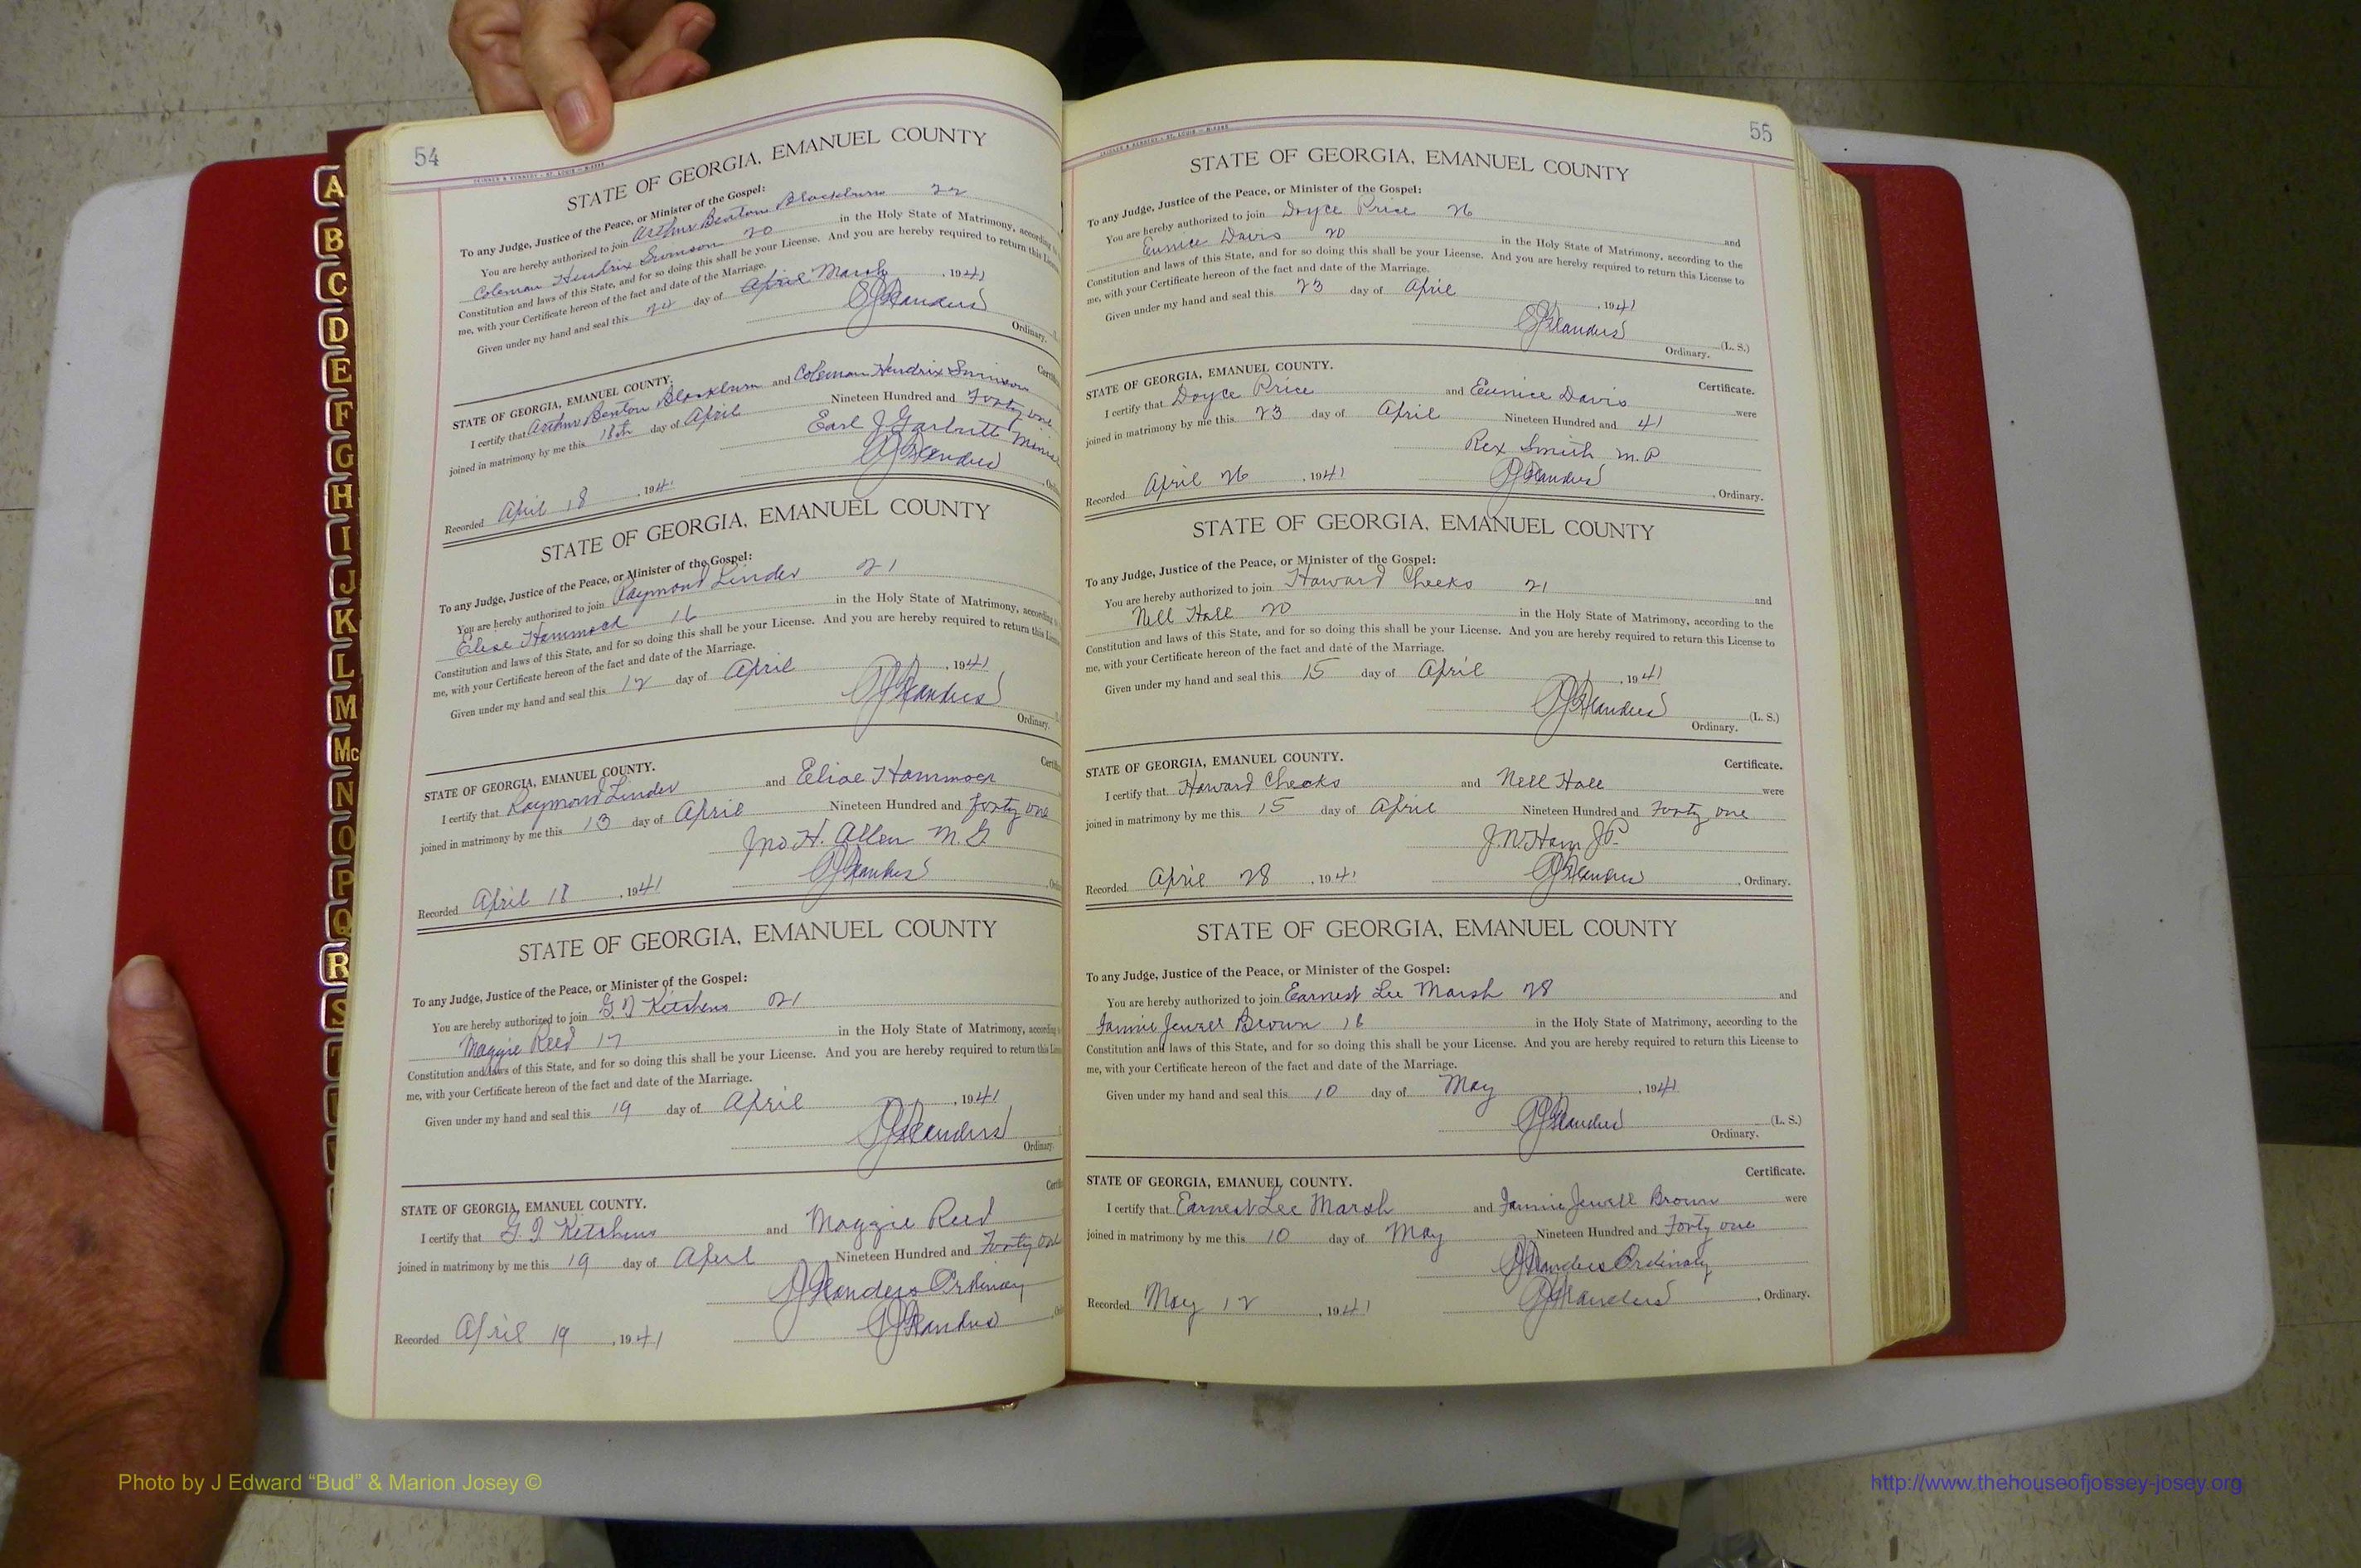 54
STATE OF GEORGIA, EMANUEL COUNTY
To any Judge, Justice of the Peace, or Minister of the Gospel:
You are hereby authorized to join Arthur Benton Blackburn 22
Coleman Hendrix Swinson 20 in the Holy State of Matrimony, according
Constitution and laws of this State, and for so doing this shall be your License. And you are hereby required to return this
me, with your Certificate hereon of the fact and date of the Marriage.
Given under my hand and seal this day of April March , 1941
Ordinary.
STATE OF GEORGIA, EMANUEL COUNTY.
I certify that Arthur Benton Blackburn and Coleman Hendrix Swinson
joined in matrimony by me this 18th day of April Nineteen Hundred and Forty one
Earl J Garbutt
Recorded April 18 , 194
STATE OF GEORGIA, EMANUEL COUNTY
To any Judge, Justice of the Peace, or Minister of the Gospel:
You are hereby authorized to join Raymond Linder 21
Elise Hammock 16 in the Holy State of Matrimony,
Constitution and laws of this State, and for so doing this shall be your License. And you are hereby required to return this
me, with your Certificate hereon of the fact and date of the Marriage.
Given under my hand and seal this 12 day of April , 1941
Ordinary.
STATE OF GEORGIA, EMANUEL COUNTY.
I certify that Raymond Linder and Elise Hammock
joined in matrimony by me this 13 day of April Nineteen Hundred and Forty one
Jno H. Allen M.G.
Recorded April 18 , 1941
STATE OF GEORGIA, EMANUEL COUNTY
To any Judge, Justice of the Peace, or Minister of the Gospel:
You are hereby authorized to join Kitchens 21
Maggie Reed 17 in the Holy State of Matrimony, according
Constitution and laws of this State, and for so doing this shall be your License. And you are hereby required to return this
me, with your Certificate hereon of the fact and date of the Marriage.
Given under my hand and seal this 19 day of April , 1941
Ordinary.
STATE OF GEORGIA, EMANUEL COUNTY.
I certify that Kitchens and Maggie Reed
joined in matrimony by me this 19 day of April Nineteen Hundred and Forty one
Ordinary
Recorded April 19 , 1941
55
STATE OF GEORGIA, EMANUEL COUNTY
To any Judge, Justice of the Peace, or Minister of the Gospel:
You are hereby authorized to join Doyce Price 26 and
Eunice Davis 20 in the Holy State of Matrimony, according to the
Constitution and laws of this State, and for so doing this shall be your License. And you are hereby required to return this License to
me, with your Certificate hereon of the fact and date of the Marriage.
Given under my hand and seal this 23 day of April , 1941
(L. S.)
Ordinary.
STATE OF GEORGIA, EMANUEL COUNTY. Certificate.
I certify that Doyce Price and Eunice Davis were
joined in matrimony by me this 23 day of April Nineteen Hundred and 41
Rex Smith
Recorded April 26 , 1941 , Ordinary.
STATE OF GEORGIA, EMANUEL COUNTY
To any Judge, Justice of the Peace, or Minister of the Gospel:
You are hereby authorized to join Howard Cheeks 21 and
Nell Hall 20 in the Holy State of Matrimony, according to the
Constitution and laws of this State, and for so doing this shall be your License. And you are hereby required to return this License to
me, with your Certificate hereon of the fact and date of the Marriage.
Given under my hand and seal this 15 day of April , 1941
(L. S.)
Ordinary.
STATE OF GEORGIA, EMANUEL COUNTY. Certificate.
I certify that Howard Cheeks and Nell Hall were
joined in matrimony by me this 15 day of April Nineteen Hundred and Forty one
Recorded April 28 , 1941 , Ordinary.
STATE OF GEORGIA, EMANUEL COUNTY
To any Judge, Justice of the Peace, or Minister of the Gospel:
You are hereby authorized to join Earnest Lee Marsh 28 and
Jewell Brown 18 in the Holy State of Matrimony, according to the
Constitution and laws of this State, and for so doing this shall be your License. And you are hereby required to return this License to
me, with your Certificate hereon of the fact and date of the Marriage.
Given under my hand and seal this 10 day of May , 1941
(L. S.)
Ordinary.
STATE OF GEORGIA, EMANUEL COUNTY. Certificate.
I certify that Earnest Lee Marsh and Jewell Brown were
joined in matrimony by me this 10 day of May Nineteen Hundred and Forty one
Ordinary
Recorded May 12 , 1941 , Ordinary.
A
B
C
D
E
F
G
H
I
J
K
L
M
Mc
N
O
P
Q
R
S
Photo by J Edward “Bud” & Marion Josey ©
http://www.thehouseofjossey-josey.org